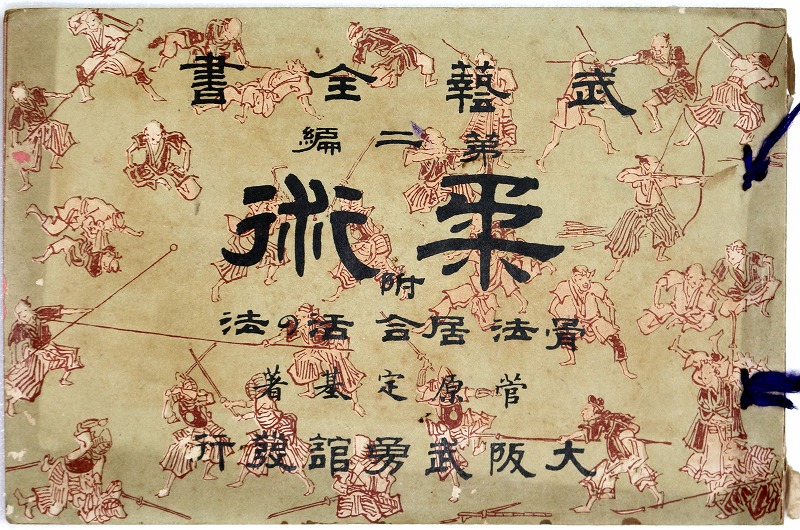 武藝全書
第二編
柔術
附
骨法居合活の法
菅原定基著
大阪武勇館發行